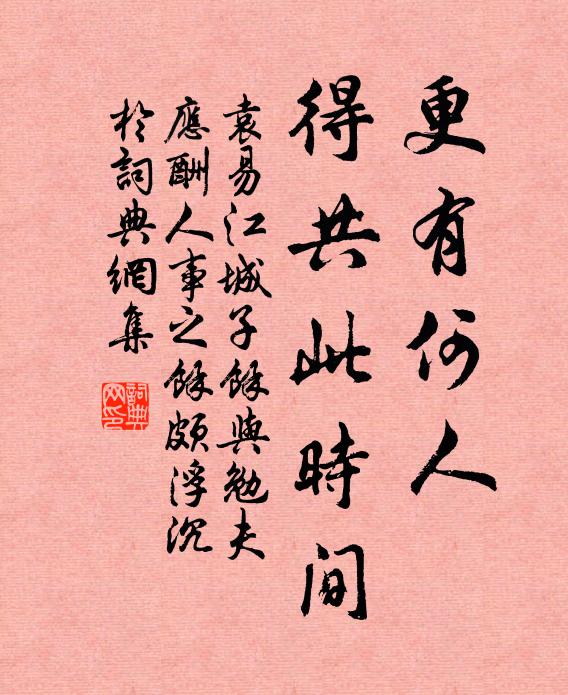 更有何人
得共此時間
袁易江城子餘與勉夫
應酬人事之餘頗浮沉
於詞典網集
詞典網印